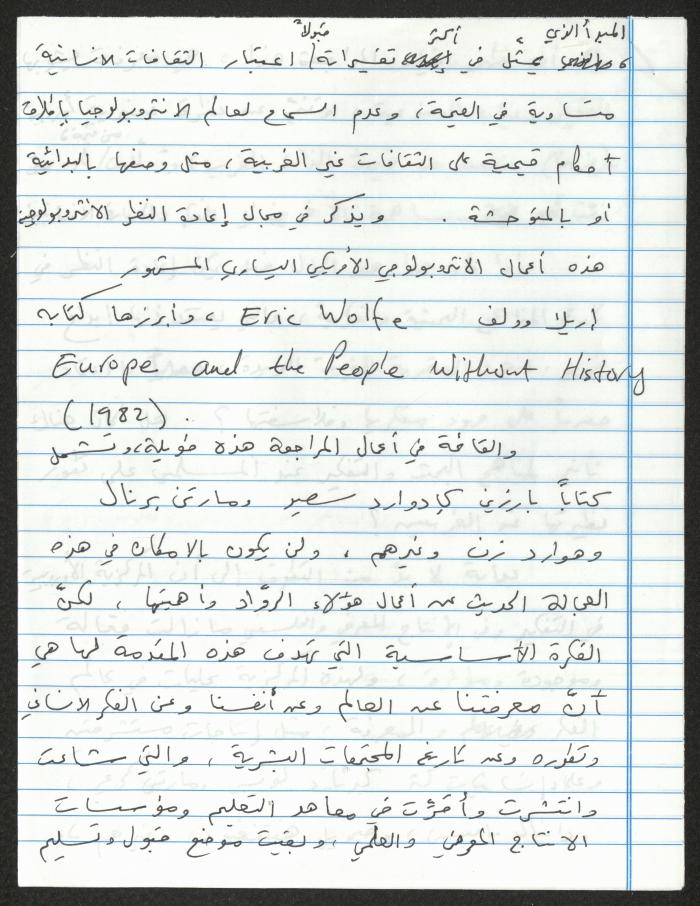 المبدأ الذي أكثر قبولاً
يمثل في تفسيراته اعتبار الثقافات الانسانية
متساوية في القيمة، وعدم السماح لعالم الانثروبولوجيا باطلاق
أحكام قيمية على الثقافات غير الغربية، مثل وصفها بالبدائية
أو بالمتوحشة . ويذكر في مجال إعادة النظر الانثروبولوجي
هذه أعمال الانثروبولوجي الأمريكي اليساري المشهور
اريك وولف Eric Wolfe، وأبرزها كتابه
Europe and the People Without History
(1982).
والقائمة في أعمال المراجعة هذه طويلة، وتشمل
كتاباً بارزين كإدوارد سعيد ومارتن برنال
وهوارد زن وغيرهم، ولن يكون بالامكان في هذه
العجالة الحديث عن أعمال هؤلاء الروّاد وأهميتها، لكنّ
الفكرة الأساسية التي تهدف هذه المقدمة لها هي
أنّ معرفتنا عن العالم وعن أنفسنا وعن الفكر الانساني
وتطوره وعن تاريخ المجتمعات البشرية، والتي شاعت
وانتشرت وأقرّت في معاهد التعليم ومؤسسات
الانتاج المعرفي والعلمي، وبقيت موضع قبول وتسليم